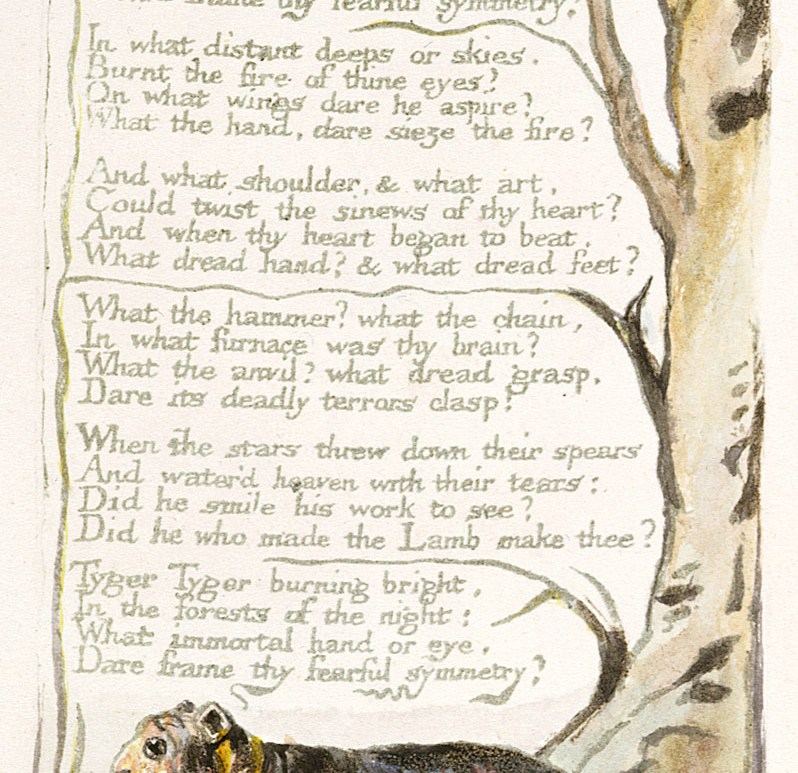 thy fearful symmetry?
In what distant deeps or skies.
Burnt the fire of thine eyes?
On what wings dare he aspire?
What the hand, dare sieze the fire?
And what shoulder, & what art,
Could twist the sinews of thy heart?
And when thy heart began to beat,
What dread hand? & what dread feet?
What the hammer? what the chain,
In what furnace was thy brain?
What the anvil? what dread grasp,
Dare its deadly terrors clasp!
When the stars threw down their spears
And water'd heaven with their tears:
Did he smile his work to see?
Did he who made the Lamb make thee?
Tyger Tyger burning bright,
In the forests of the night:
What immortal hand or eye,
Dare frame thy fearful symmetry?